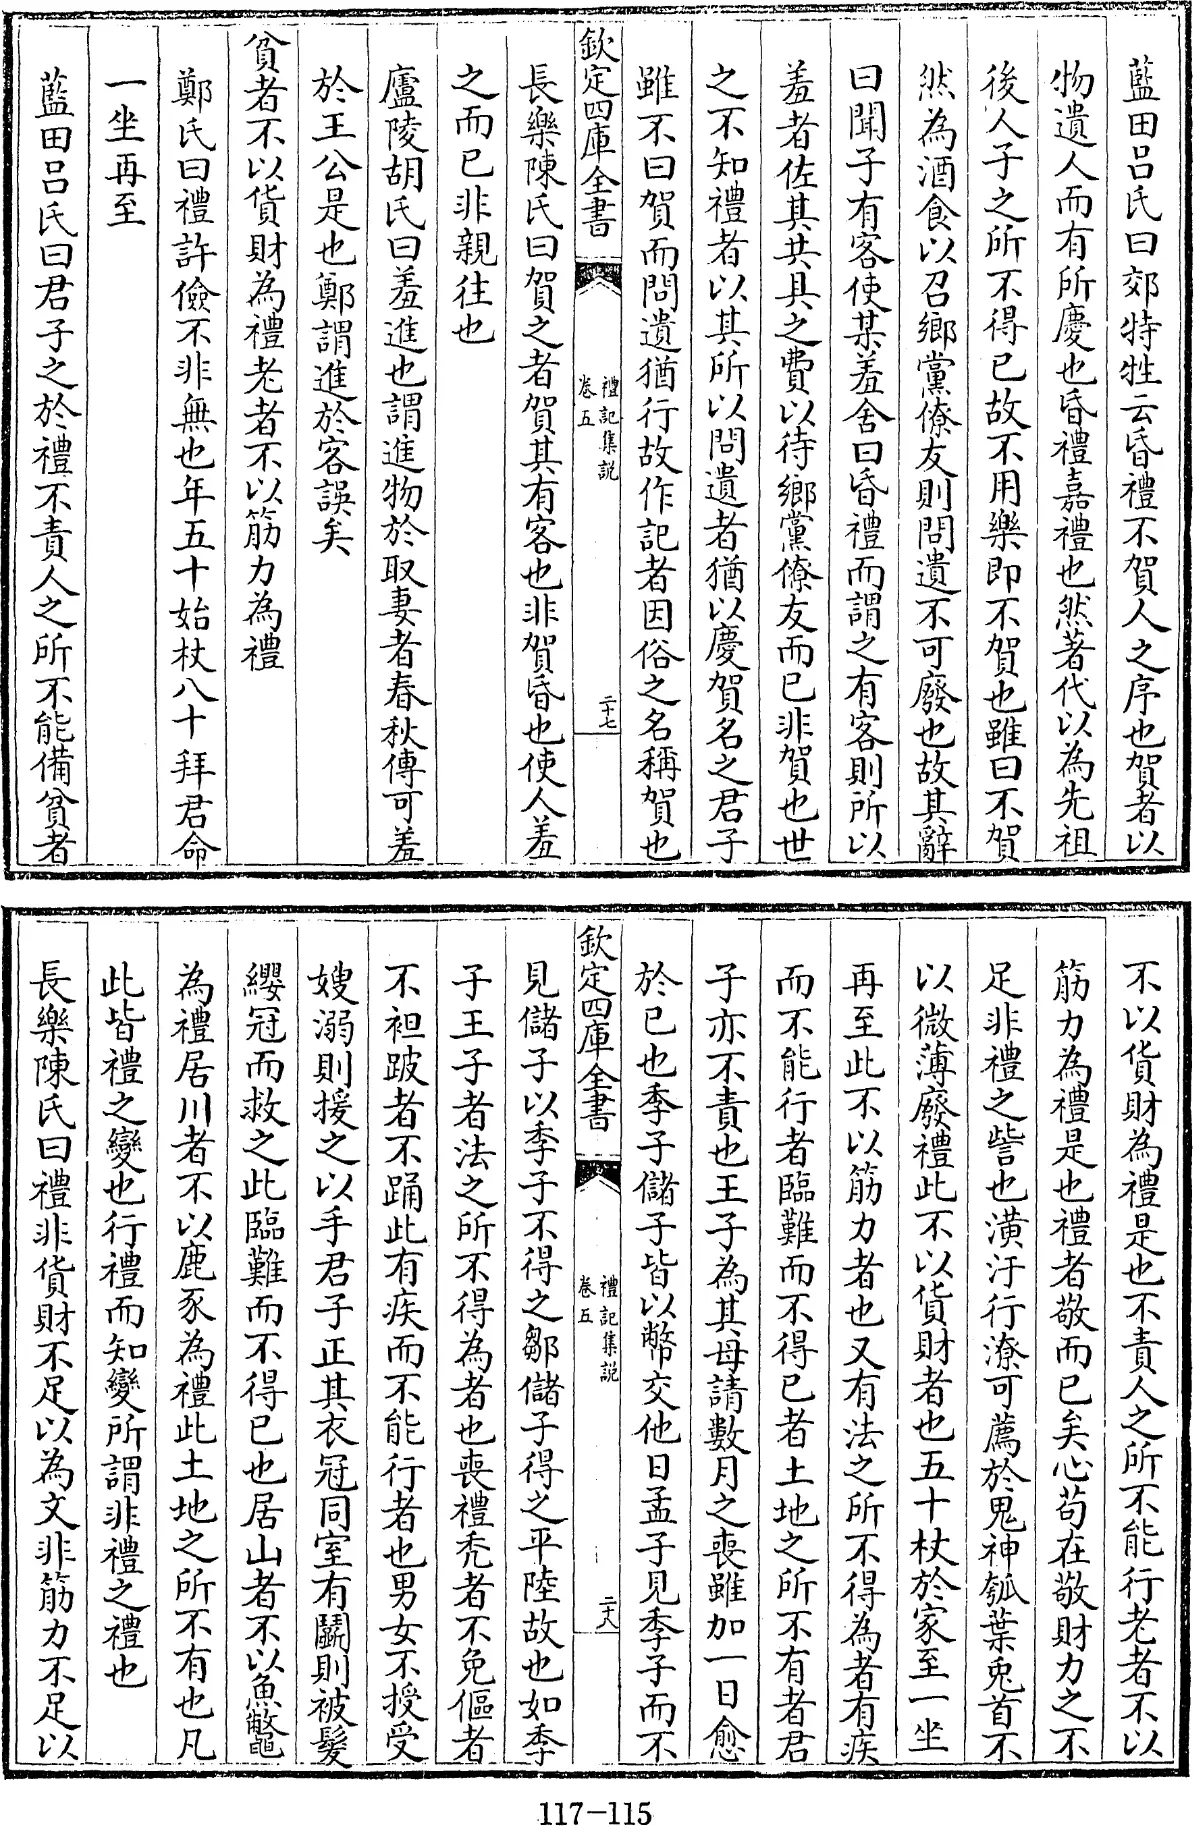 藍田呂氏曰郊特牲云昏禮不賀人之序也賀者以
物遺人而有所慶也昏禮嘉禮也然著代以為先祖
後人子之所不得已故不用樂即不賀也雖曰不賀
然為酒食以召鄉黨僚友則問遺不可廢也故其辭
曰聞子有客使某羞舍曰昏禮而謂之有客則所以
羞者佐其共具之費以待鄉黨僚友而已非賀也世
之不知禮者以其所以問遺者猶以慶賀名之君子
雖不曰賀而問遺猶行故作記者因俗之名稱賀也
欽定四庫全書
禮記集說
卷五
二十七
長樂陳氏曰賀之者賀其有客也非賀昏也使人羞
之而已非親往也
廬陵胡氏曰羞進也謂進物於取妻者春秋傳可羞
於王公是也鄭謂進於客誤矣
貧者不以貨財為禮老者不以筋力為禮
鄭氏曰禮許儉不非無也年五十始杖八十拜君命
一坐再至
藍田呂氏曰君子之於禮不責人之所不能備貧者
不以貨財為禮是也不責人之所不能行老者不以
筋力為禮是也禮者敬而已矣心苟在敬財力之不
足非禮之訾也潢汙行潦可薦於鬼神瓠葉兎首不
以微薄廢禮此不以貨財者也五十杖於家至一坐
再至此不以筋力者也又有法之所不得為者有疾
而不能行者臨難而不得已者土地之所不有者君
子亦不責也王子為其母請數月之喪雖加一日愈
於已也季子儲子皆以幣交他日孟子見季子而不
欽定四庫全書
禮記集說
卷五
二十八
見儲子以季子不得之鄒儲子得之平陸故也如季
子王子者法之所不得為者也喪禮禿者不免傴者
不袒跛者不踊此有疾而不能行者也男女不授受
嫂溺則援之以手君子正其衣冠同室有鬬則被髮
纓冠而救之此臨難而不得已也居山者不以魚鼈
為禮居川者不以鹿豕為禮此土地之所不有也凡
此皆禮之變也行禮而知變所謂非禮之禮也
長樂陳氏曰禮非貨財不足以為文非筋力不足以
117-115